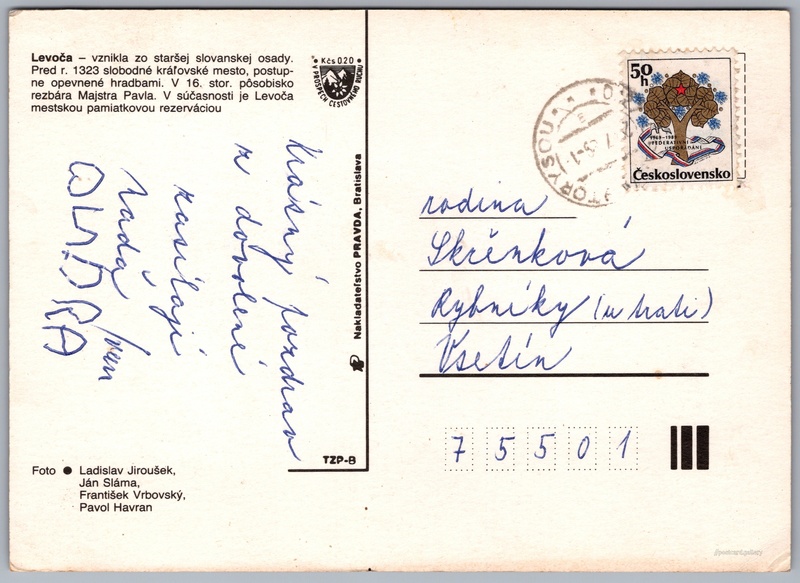 Levoča – vznikla zo staršej slovanskej osady.
Pred r. 1323 slobodné kráľovské mesto, postup-
ne opevnené hradbami. V 16. stor. pôsobisko
rezbára Majstra Pavla. V súčasnosti je Levoča
mestskou pamiatkovou rezerváciou
Kčs 0.20
V PROSPECH CESTOVNÉHO RUCHU
Krásný pozdrav
z dovolené
zasílají
Naďa
OLIN
Nakladateľstvo PRAVDA, Bratislava
TZP-B
Foto ● Ladislav Jiroušek,
Ján Sláma,
František Vrbovský,
Pavol Havran
50h
1968-1988
FEDERATIVNÍ
USPOŘÁDÁNÍ
Československo
TORYSOU
rodina
Skřénková
Rybníky (u trati)
Vsetín
75501